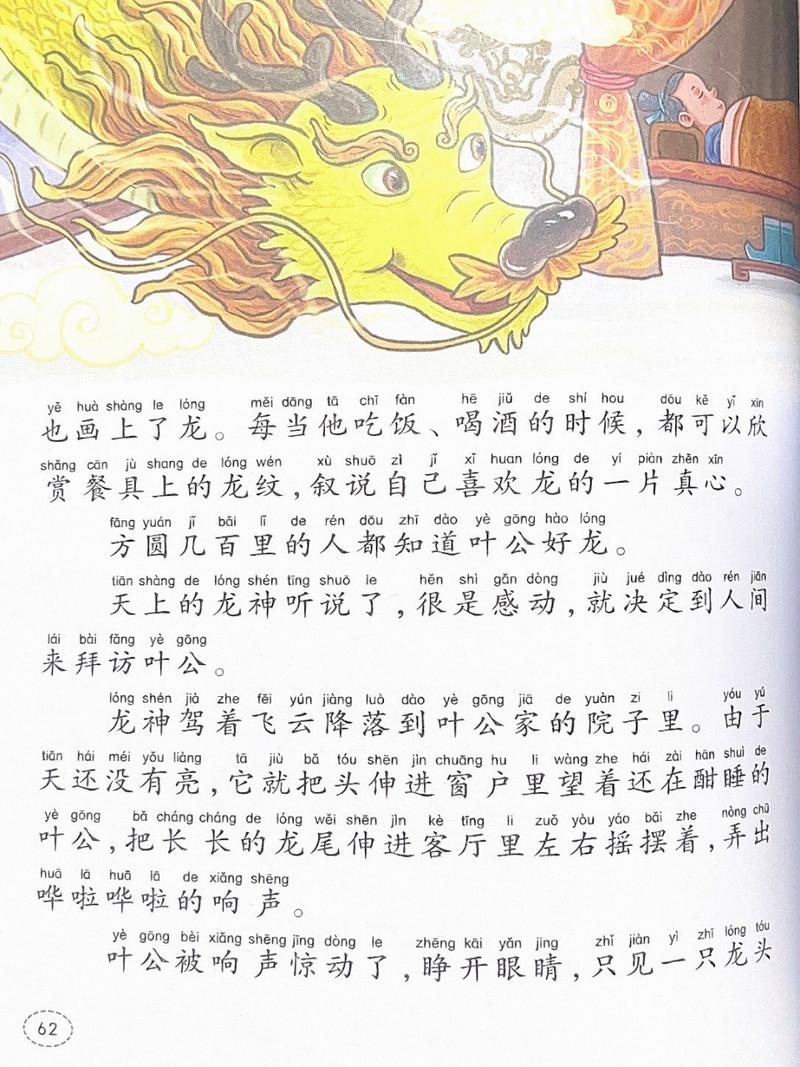 yě huà shàng le lóng měi dāng tā chī fàn hē jiǔ de shí hou dōu kě yǐ xīn
也画上了龙。每当他吃饭、喝酒的时候，都可以欣
shǎng cān jù shang de lóng wén xù shuō zì jǐ xǐ huan lóng de yí piàn zhēn xīn
赏餐具上的龙纹，叙说自己喜欢龙的一片真心。
fāng yuán jǐ bǎi lǐ de rén dōu zhī dào yè gōng hào lóng
方圆几百里的人都知道叶公好龙。
tiān shàng de lóng shén tīng shuō le hěn shì gǎn dòng jiù jué dìng dào rén jiān
天上的龙神听说了，很是感动，就决定到人间
lái bài fǎng yè gōng
来拜访叶公。
lóng shén jià zhe fēi yún jiàng luò dào yè gōng jiā de yuàn zi li yóu yú
龙神驾着飞云降落到叶公家的院子里。由于
tiān hái méi yǒu liàng tā jiù bǎ tóu shēn jìn chuāng hu li wàng zhe hái zài hān shuì de
天还没有亮，它就把头伸进窗户里望着还在酣睡的
yè gōng bǎ cháng cháng de lóng wěi shēn jìn kè tīng li zuǒ yòu yáo bǎi zhe nòng chū
叶公，把长长的龙尾伸进客厅里左右摇摆着，弄出
huā lā huā lā de xiǎng shēng
哗啦哗啦的响声。
yè gōng bèi xiǎng shēng jīng dòng le zhēng kāi yǎn jing zhǐ jiàn yì zhī lóng tóu
叶公被响声惊动了，睁开眼睛，只见一只龙头
62